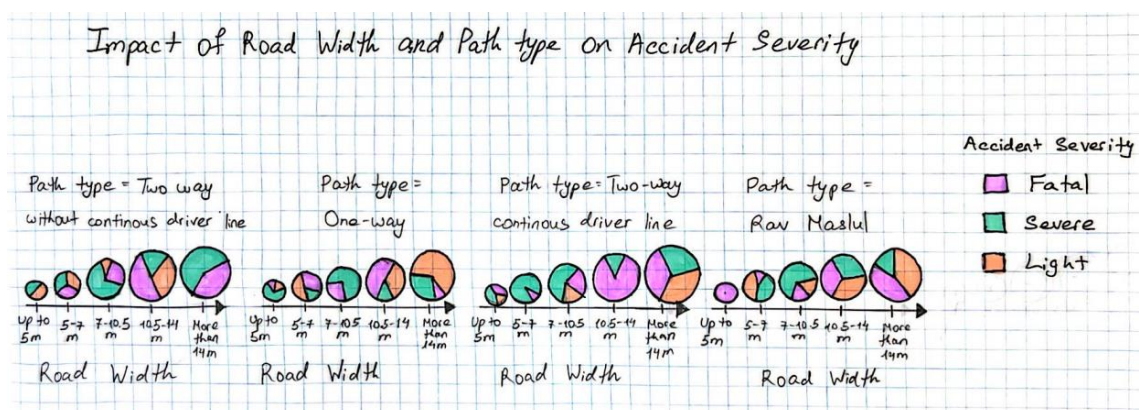 Impact of Road Width and Path type on Accident Severity
Accident Severity
Fatal
Severe
Light
Path type = Two way
without continous driver line
Up to 5m
5-7 m
7-10.5 m
10.5-14 m
More than 14m
Road Width
Path type =
One-way
Up to 5m
5-7 m
7-10.5 m
10.5-14 m
More than 14m
Road Width
Path type = Two-way
continous driver line
Up to 5m
5-7 m
7-10.5 m
10.5-14 m
More than 14m
Road Width
Path type =
Rav Maslul
Up to 5m
5-7 m
7-10.5 m
10.5-14 m
More than 14m
Road Width